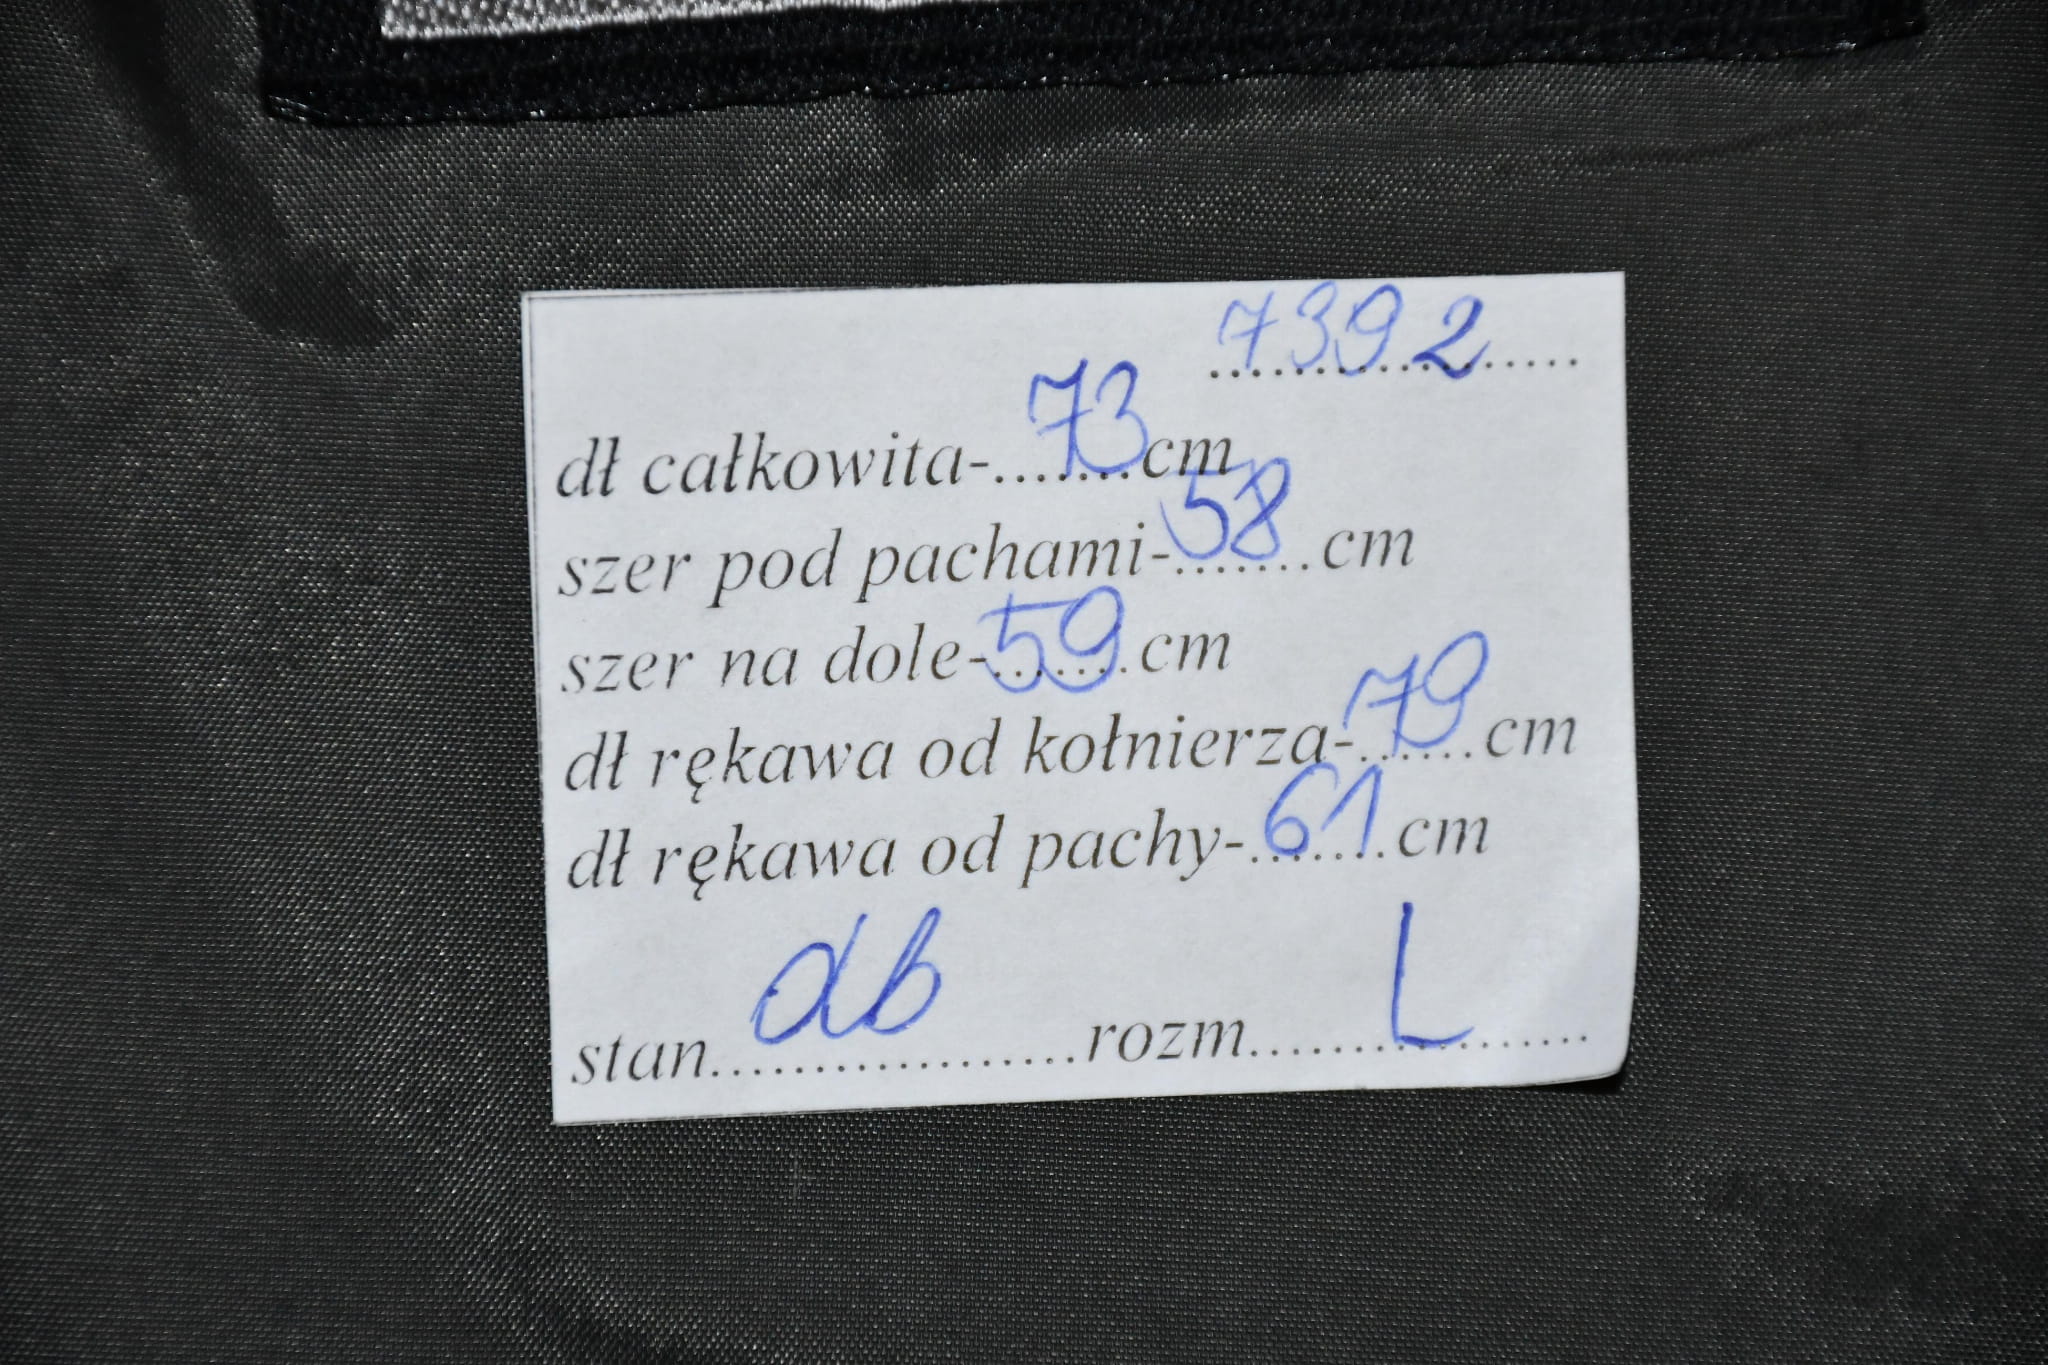 7392
dł całkowita-73cm
szer pod pachami-58cm
szer na dole-59cm
dł rękawa od kołnierza-79cm
dł rękawa od pachy-61cm
stan db rozm L